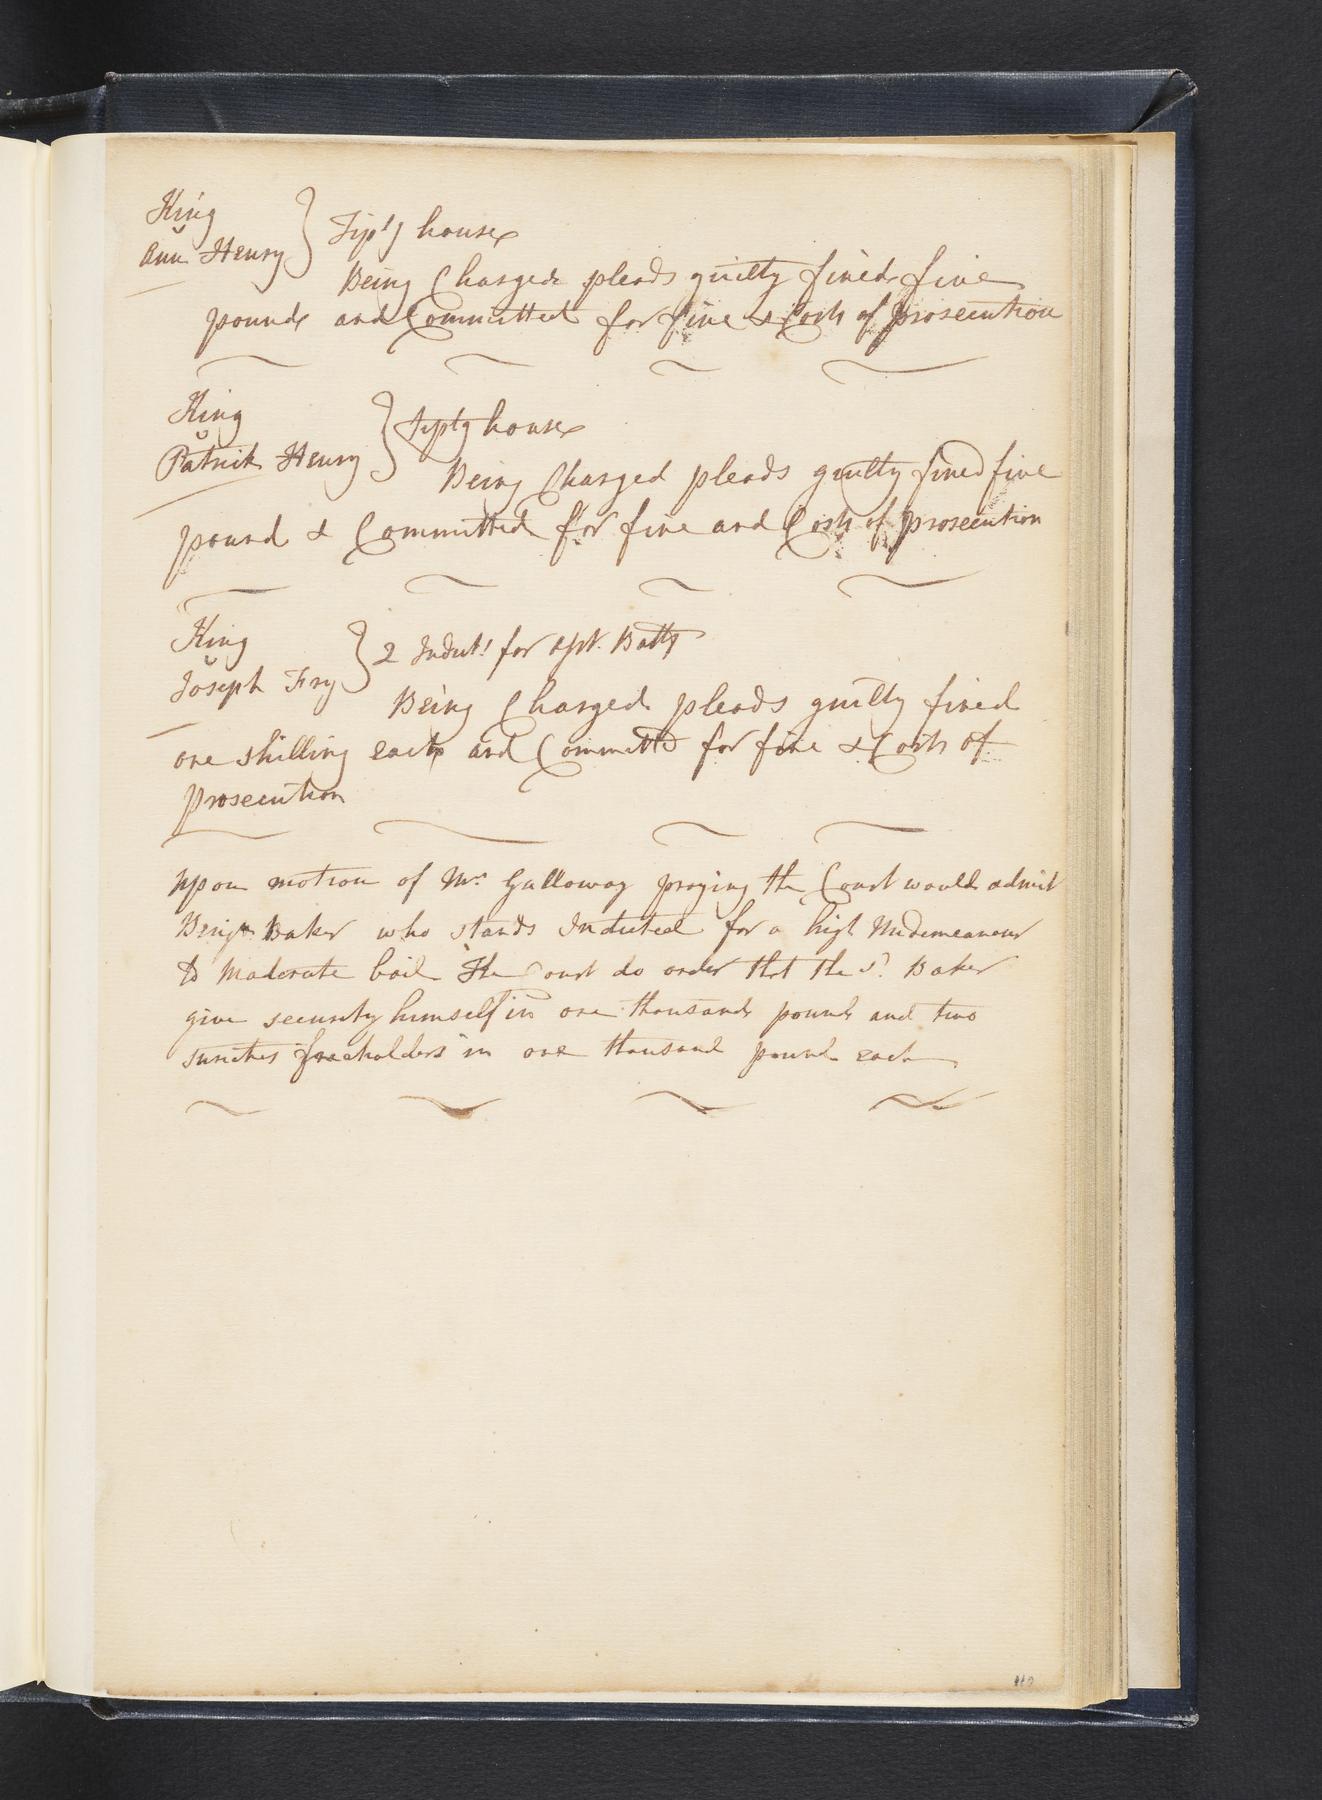 King
v
Ann Henry } Tipl'g house
Being Charged pleads guilty fined five
pounds and Committed for fine & Costs of prosecution
King
v
Patrick Henry } Tiplg house
Being Charged pleads guilty fined five
pound & Committed for fine and Costs of prosecution
King
v
Joseph Fry } 2 Indict.ts for Asst. Batty
Being Charged pleads guilty fined
one shilling each and Committd for fine & Costs of
prosecution
Upon motion of Mr. Galloway praying the Court would admit
Benjn Baker who stands Indicted for a high Misdemeanour
to Moderate bail The Court do order that the sd. Baker
give security himself in one thousand pounds and two
sureties freeholders in one thousand pound each